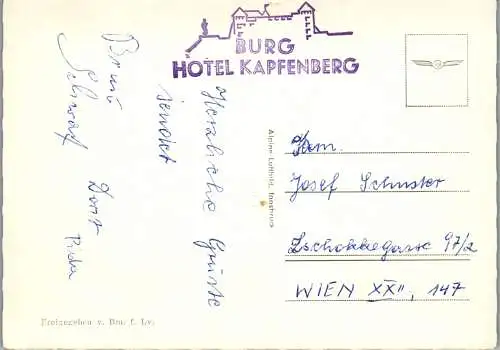 BURG
HOTEL KAPFENBERG
Herzliche Grüsse
sendet
Alpine Luftbild, Innsbruck
Fam.
Josef Schuster
Zschokkegasse 97/2
WIEN XXII, 147
Freigegeben v. Bm. f. Lv.